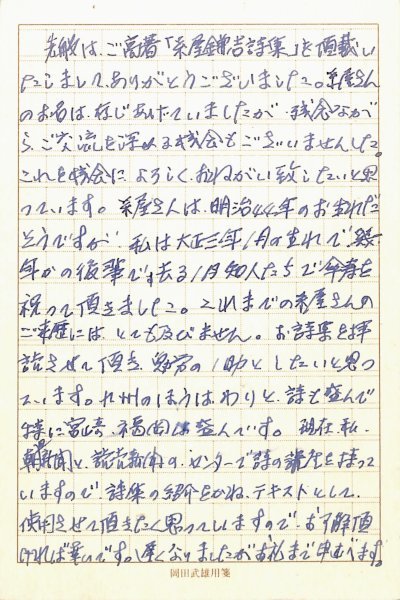 先般は、ご高著「糸屋鎌吉詩集」を頂戴い
たしまして、ありがとうございました。糸屋さん
のお名は、存じあげていましたが、残念なが
ら、ご交流を深める機会もございませんでした。
これを機会に、よろしく、おねがい致したいと思
っています。糸屋さんは、明治44年のお生れだ
そうですが、私は大正三年1月の生れで、
年かの後輩です。去る1月知人たちで傘寿を
祝って頂きました。これまでの糸屋さんの
ご来歴には、とても及びません。お詩集を拝
読させて頂き、の1助としたいと思っ
ています。九州のほうは、わりと、詩も盛んで
特に宮崎、福岡は盛んです。現在、私、
朝日新聞と、読売新聞の、センターで詩の講座を持って
いますので、詩集の紹介をかね、テキストとして、
使用させて頂きたく思っていますので、お了解頂
ければ幸いです。遅くなりましたがお礼まで申し述べます。
岡田武雄用箋